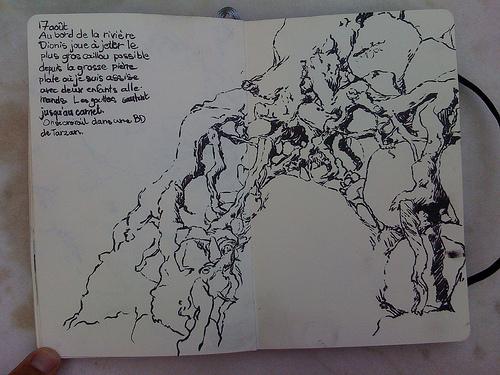 17 août
Au bord de la rivière
Dionis joue à jeter le
plus gros caillou possible
depuis la grosse pierre
plate où je suis assise
avec deux enfants alle-
mands. Les gouttes sautent
jusqu'au carnet.
On se croirait dans une BD
de Tarzan.